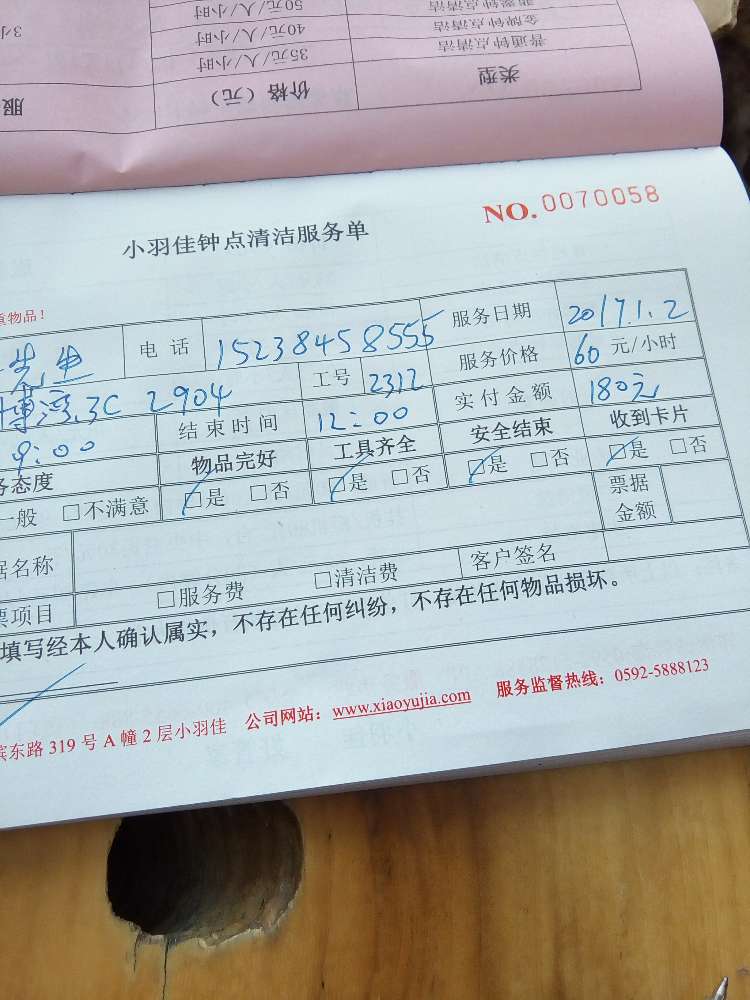 类型 价格（元） 服
普通钟点清洁 35元/人/小时
金牌钟点清洁 40元/人/小时 3小
钟点清洁 50元/人/小时
NO. 0070058
小羽佳钟点清洁服务单
物品！
先生 电话 15238458555 服务日期 2017.1.2
博湾.3C 2904 工号 2312 服务价格 60 元/小时
9:00 结束时间 12:00 实付金额 180元
务态度 物品完好 工具齐全 安全结束 收到卡片
一般 □不满意 □是 □否 □是 □否 □是 □否 □是 □否
据名称 票据金额
票项目 □服务费 □清洁费 客户签名
填写经本人确认属实，不存在任何纠纷，不存在任何物品损坏。
滨东路 319 号 A 幢 2 层小羽佳 公司网站：www.xiaoyujia.com 服务监督热线：0592-5888123